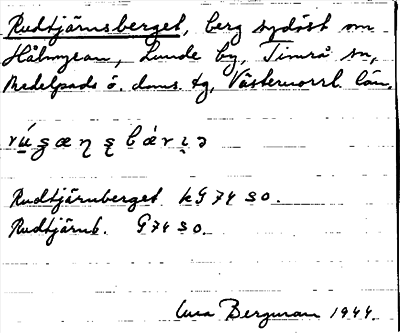 Rudtjärnsberget, berg sydöst om
Hålmyran, Lunde by, Timrå sn,
Medelpads ö. doms. tg, Västernorrl. län.
Rudtjärnberget kG 74 SO.
Rudtjärnb. G 74 SO.
Bergman 1944.